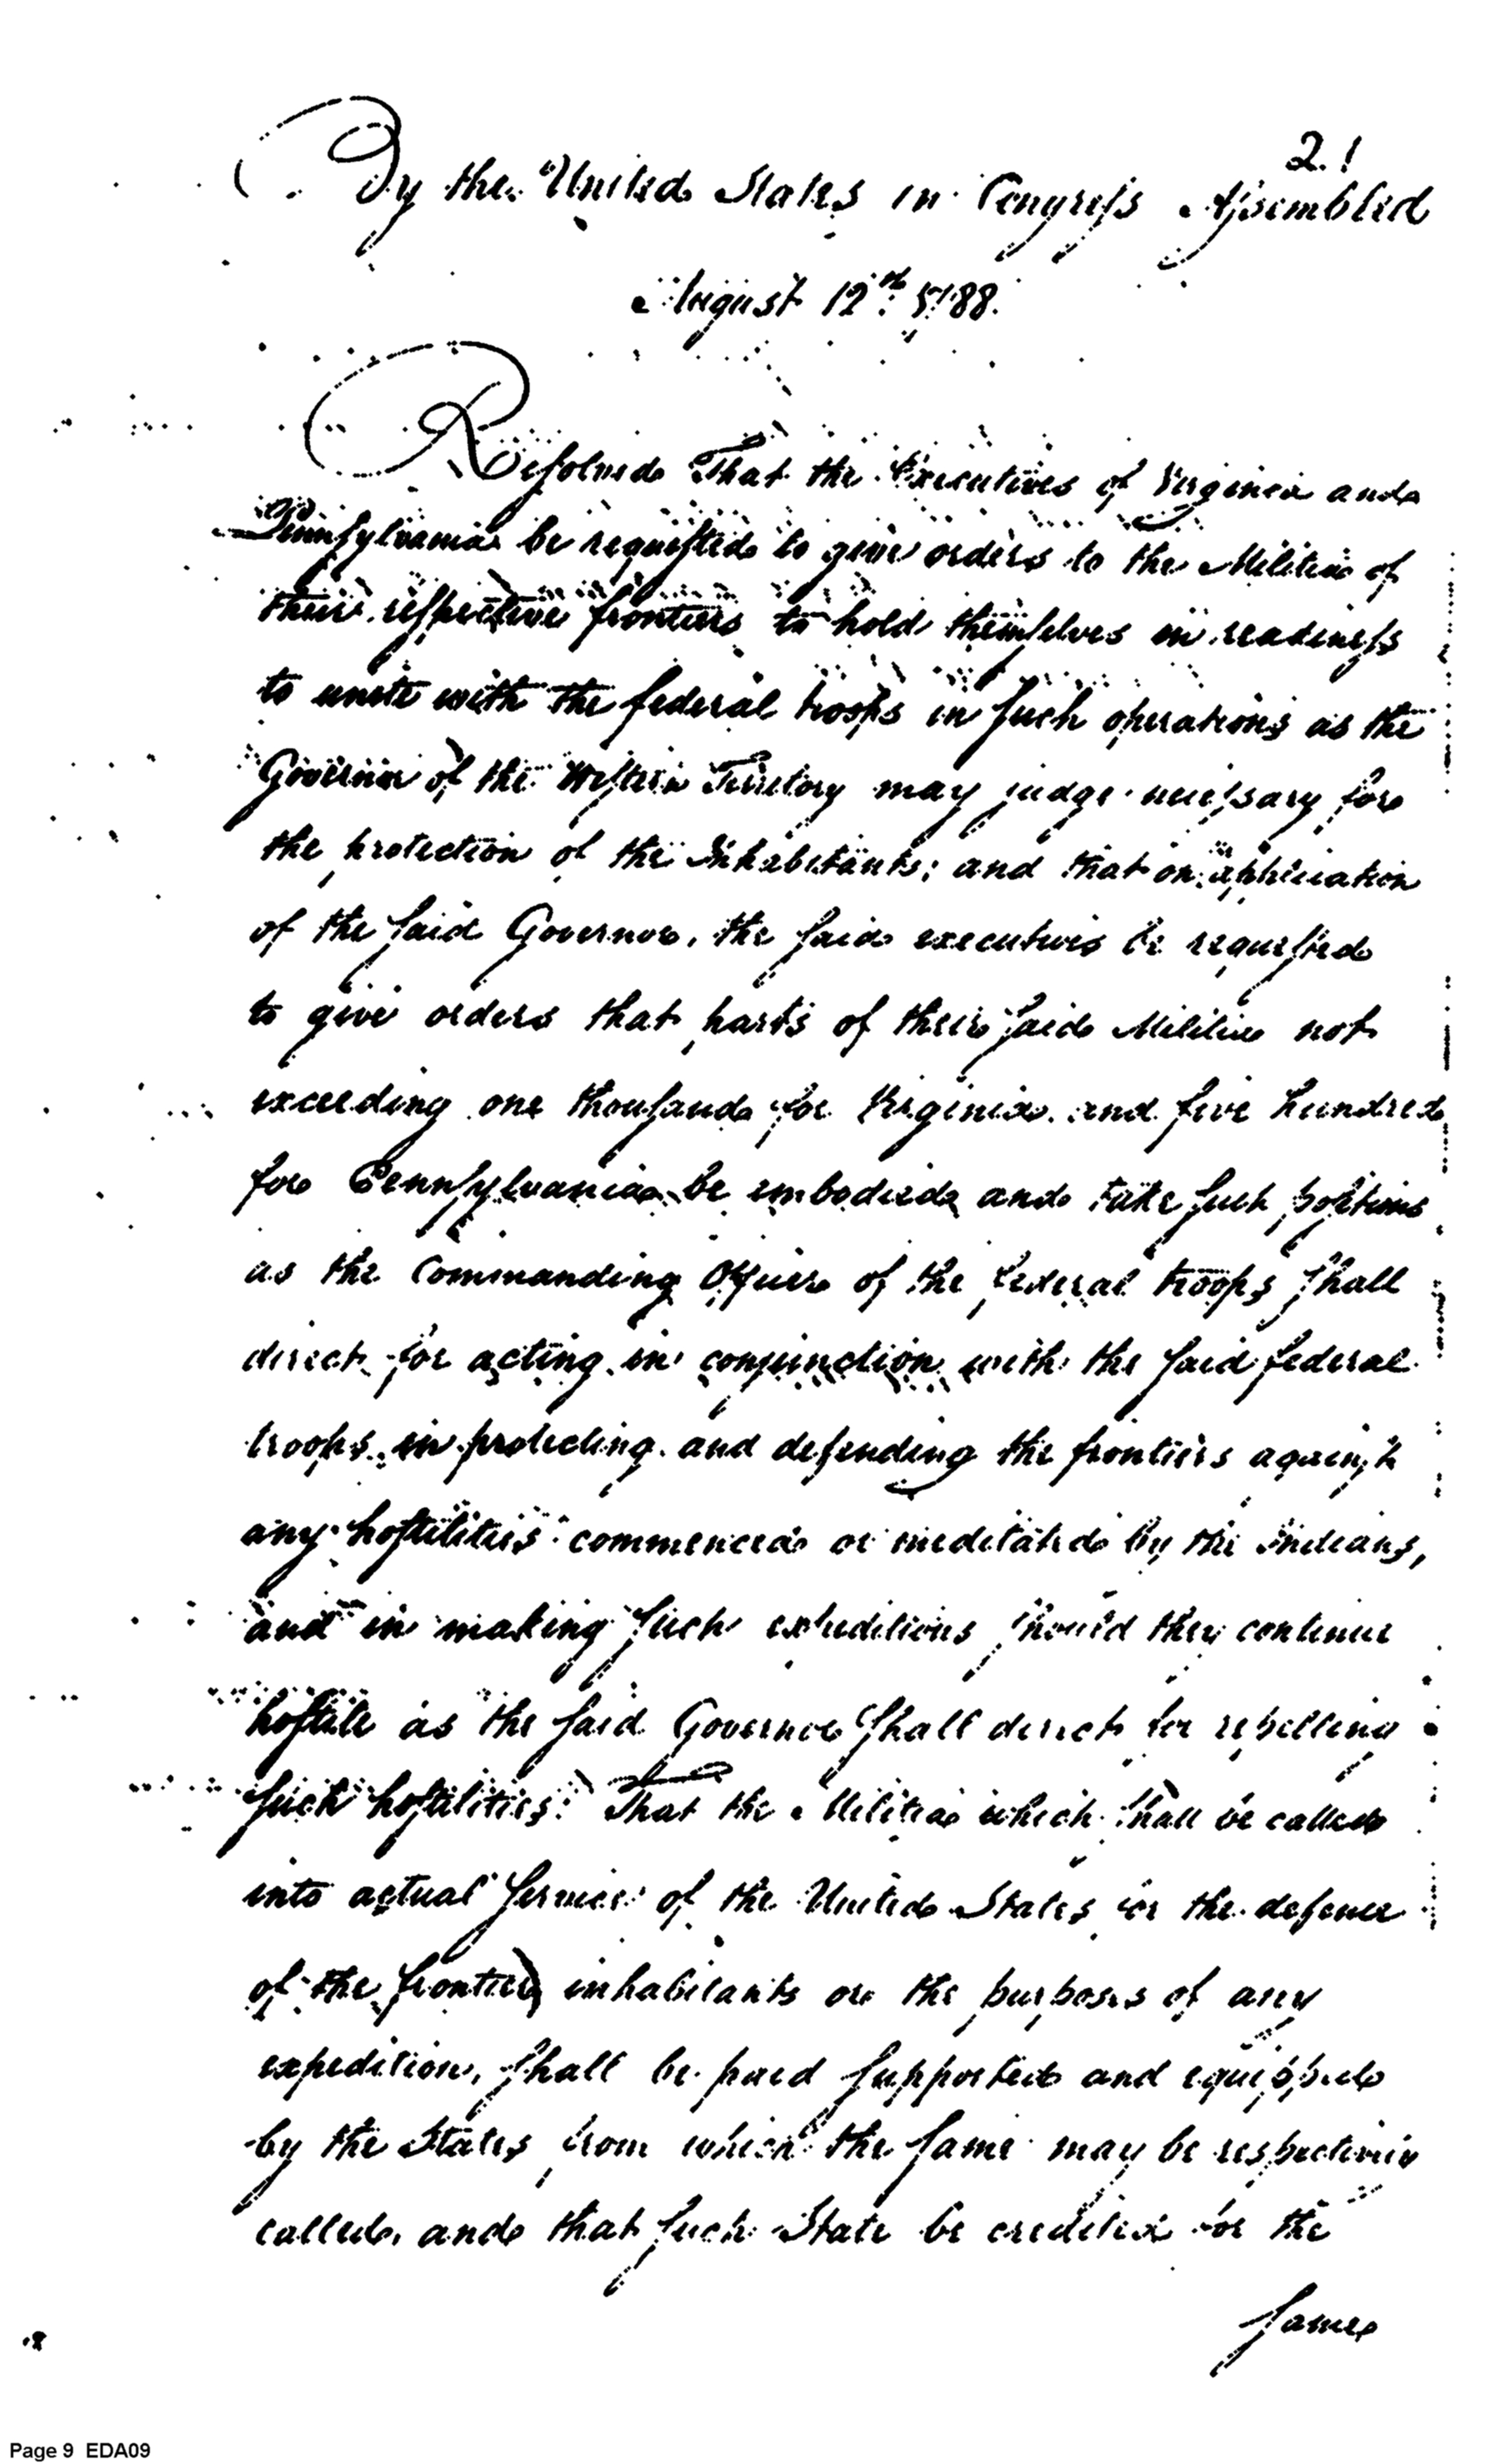 2.1
By the United States in Congress Assembled
August 12th 1788.
Resolved That the Executives of Virginia and
Pennsylvania be requested to give orders to the Militia of
their respective frontiers to hold themselves in readiness
to unite with the federal troops in such operations as the
Governor of the Western Territory may judge necessary for
the protection of the Inhabitants; and that on application
of the said Governor, the said executives be requested
to give orders that parts of their said Militia not
exceeding one thousand for Virginia and five hundred
for Pennsylvania be embodied and take such positions
as the Commanding Officer of the federal troops shall
direct for acting in conjunction with the said federal
troops in protecting and defending the frontiers against
any hostilities commenced or meditated by the Indians,
and in making such expeditions should they continue
hostile as the said Governor shall direct for repelling
such hostilities: That the Militia which shall be called
into actual service of the United States for the defence
of the frontier inhabitants or the purposes of any
expedition, shall be paid supported and equipped
by the States from which the same may be respectively
called, and that such State be credited for the
same
Page 9 EDA09